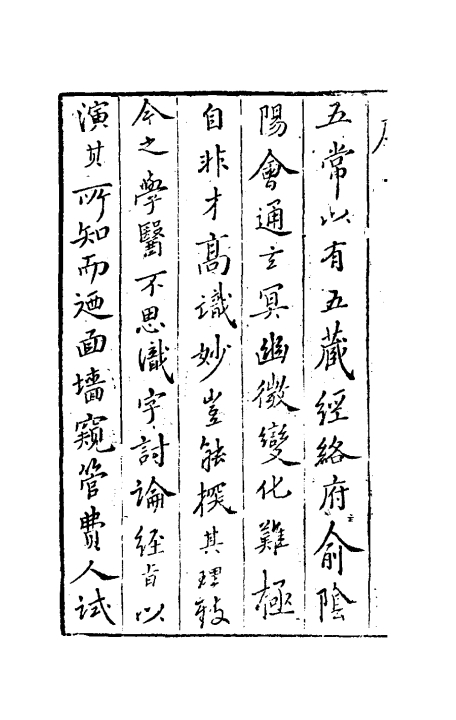 五常以有五藏經絡府俞陰
陽會通玄冥幽微變化難極
自非才高識妙豈能探其理致
今之學醫不思識字討論經旨以
演其所知而迺面墙窺管費人試